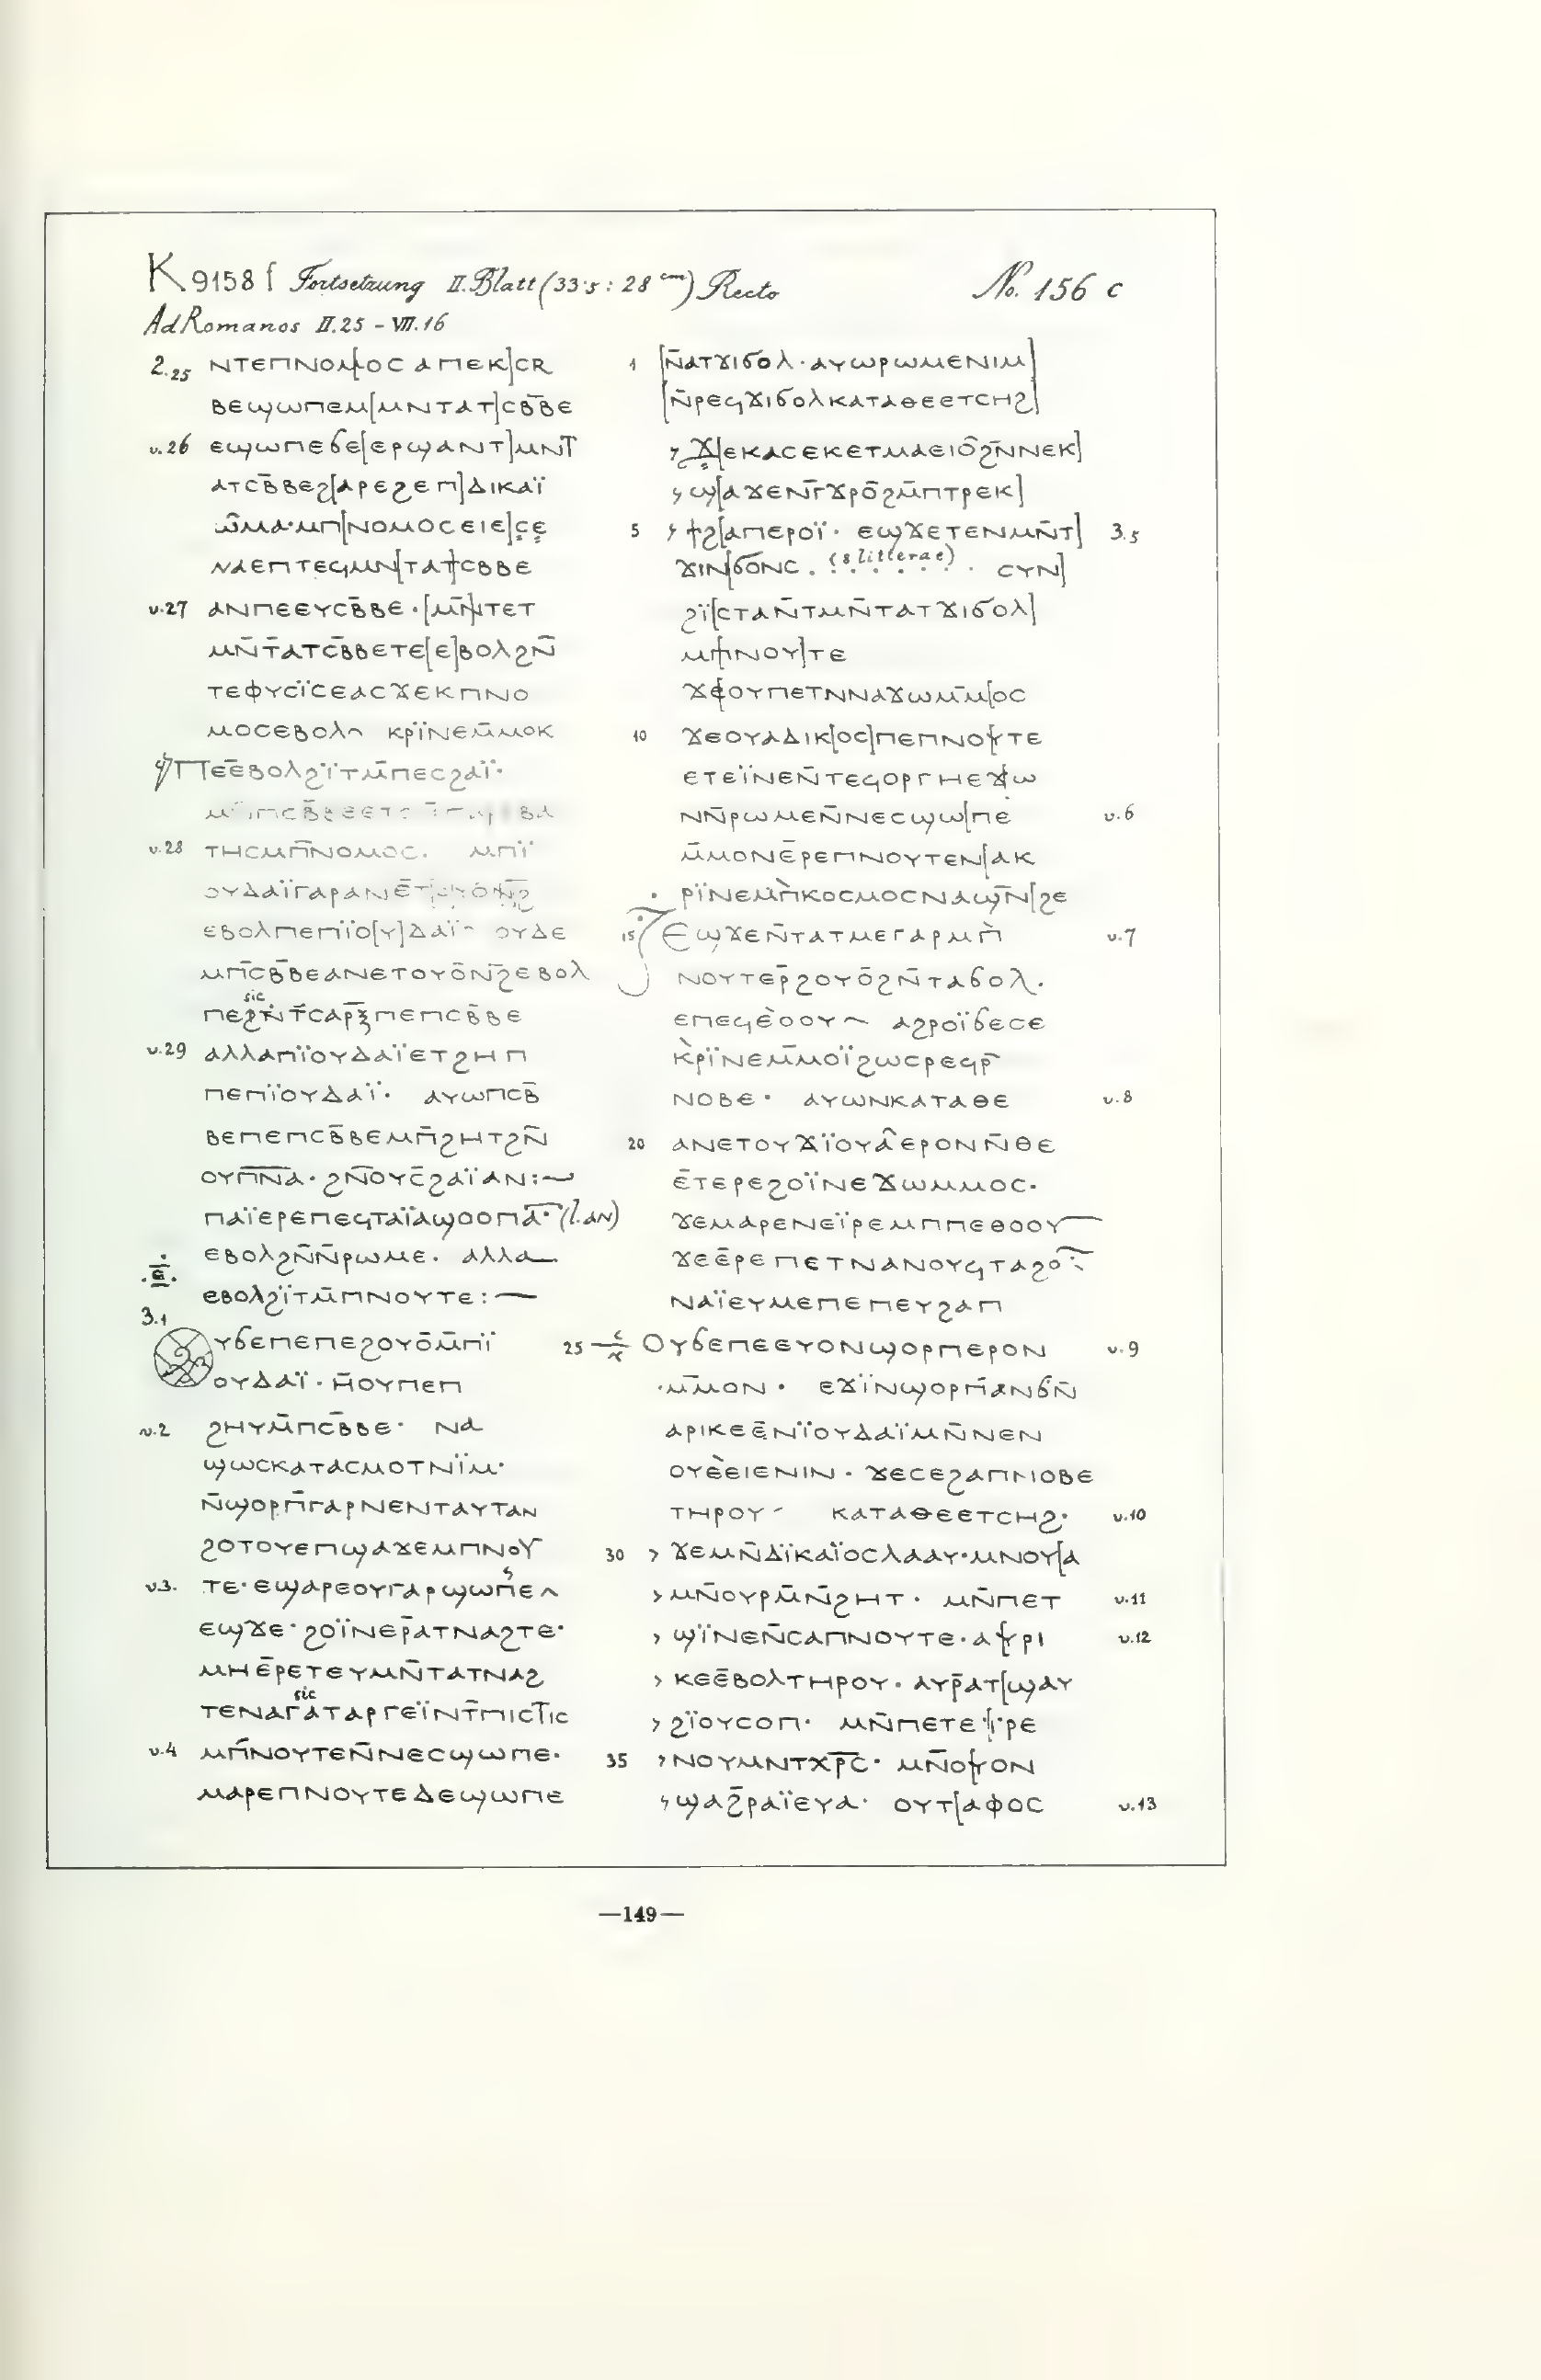 K 9158 f Fortsetzung II. Blatt (33·5 : 28 cm) Recto No. 156 c
Ad Romanos II.25 – VII.16
2.25 ⲛⲧⲉⲡⲛⲟⲙ[ⲟⲥ ⲁⲡⲉⲕ]ⲥⲃ̄
ⲃⲉϣⲱⲡⲉⲙ[ⲙⲛⲧⲁⲧ]ⲥⲃ̄ⲃⲉ
v.26 ⲉϣⲱⲡⲉϭⲉ[ⲉⲣϣⲁⲛⲧ]ⲙⲛⲧ̄
ⲁⲧⲥⲃ̄ⲃⲉϩ[ⲁⲣⲉϩⲉⲡ]ⲇⲓⲕⲁⲓ̈
ⲱ̄ⲙⲁ·ⲙⲡ[ⲛⲟⲙⲟⲥⲉⲓⲉ]ⲥ̣ⲉ̣
ⲛⲁⲉⲡⲧⲉϥⲙⲛ[ⲧⲁⲧ]ⲥⲃⲃⲉ
v.27 ⲁⲛⲡⲉⲉⲩⲥⲃ̄ⲃⲉ·[ⲙⲛ̄]ⲧⲉⲧ
ⲙⲛ̄ⲧ̄ⲁⲧⲥ̄ⲃⲃⲉⲧⲉ[ⲉ]ⲃⲟⲗϩⲛ̄
ⲧⲉⲫⲩⲥⲓ̈ⲥⲉⲁⲥϫⲉⲕⲡⲛⲟ
ⲙⲟⲥⲉⲃⲟⲗ⁓ ⲕⲣⲓ̈ⲛⲉⲙ̄ⲙⲟⲕ
ⲡⲉⲉ̄ⲃⲟⲗϩⲓ̈ⲧⲙ̄ⲡⲉⲥϩⲁⲓ̈·
v.28 ⲧⲏⲥⲙⲡ̄ⲛⲟⲙⲟⲥ. ⲙⲡⲓ̈
ⲉⲃⲟⲗⲡⲉⲡⲓ̈ⲟ[ⲩ]ⲇⲁⲓ̈⁓ ⲟⲩⲇⲉ
ⲙⲡ̄ⲥⲃ̄ⲃⲉⲁⲛⲉⲧⲟⲩⲟ̄ⲛϩ̄ⲉⲃⲟⲗ
sic
ⲡⲉϩⲛ̄ⲧ̄ⲥⲁⲣⲝ̄ⲡⲉⲡⲥⲃ̄ⲃⲉ
v.29 ⲁⲗⲗⲁⲡⲓ̈ⲟⲩⲇⲁⲓ̈ⲉⲧϩⲏⲡ
ⲡⲉⲡⲓ̈ⲟⲩⲇⲁⲓ̈· ⲁⲩⲱⲡⲥⲃ̄
ⲃⲉⲡⲉⲡⲥⲃ̄ⲃⲉⲙⲡ̄ϩⲏⲧϩⲛ̄
ⲟⲩⲡ̄ⲛ̄ⲁ̄·ϩⲛ̄ⲟⲩⲥ̄ϩⲁⲓ̈ⲁⲛ:⁓
ⲡⲁⲓ̈ⲉⲣⲉⲡⲉϥⲧⲁⲓ̈ⲁϣⲟⲟⲡⲁ̄· (l. ⲁⲛ)
.ⲉ̄. ⲉⲃⲟⲗϩⲛ̄ⲛ̄ⲣⲱⲙⲉ. ⲁⲗⲗⲁ
ⲉⲃⲟⲗϩⲓ̈ⲧⲙ̄ⲡⲛⲟⲩⲧⲉ:—
3.1 ⲟⲩϭⲉⲡⲉⲡⲉϩⲟⲩⲟ̄ⲙ̄ⲡⲓ̈
ⲟⲩⲇⲁⲓ̈·ⲏ̄ⲟⲩⲡⲉⲡ
v.2 ϩⲏⲩⲙ̄ⲡⲥⲃ̄ⲃⲉ· ⲛⲁ
ϣⲱⲥⲕⲁⲧⲁⲥⲙⲟⲧⲛⲓ̈ⲙ·
ⲛ̄ϣⲟⲣⲡ̄ⲅⲁⲣⲛⲉⲛⲧⲁⲩⲧⲁⲛ
ϩⲟⲧⲟⲩⲉⲡϣⲁϫⲉⲙⲡⲛⲟⲩ
v.3. ⲧⲉ·ⲉϣⲁⲣⲉⲟⲩⲅⲁⲣϣⲱⲡⲉ⁓
ⲉϣϫⲉ·ϩⲟⲓ̈ⲛⲉⲣ̄ⲁⲧⲛⲁϩⲧⲉ·
ⲙⲏⲉ̄ⲣⲉⲧⲉⲩⲙⲛ̄ⲧⲁⲧⲛⲁϩ
sic
ⲧⲉⲛⲁⲅⲁⲧⲁⲣⲅⲉⲓ̈ⲛⲧ̄ⲡⲓⲥⲧⲓⲥ
v.4 ⲙⲡ̄ⲛⲟⲩⲧⲉⲛ̄ⲛⲉⲥϣⲱⲡⲉ·
ⲙⲁⲣⲉⲡⲛⲟⲩⲧⲉⲇⲉϣⲱⲡⲉ
1 [ⲛ̄ⲁⲧϫⲓϭⲟⲗ·ⲁⲩⲱⲣⲱⲙⲉⲛⲓⲙ]
[ⲛ̄ⲣⲉϥϫⲓϭⲟⲗⲕⲁⲧⲁⲑⲉⲉⲧⲥⲏϩ]
> ϫ̣[ⲉⲕⲁⲥⲉⲕⲉⲧⲙⲁⲉⲓⲟ̄ϩⲛ̄ⲛⲉⲕ]
> ϣ[ⲁϫⲉⲛⲅ̄ϫⲣⲟ̄ϩⲙ̄ⲡⲧⲣⲉⲕ]
5 > ϯϩ[ⲁⲡⲉⲣⲟⲓ̈· ⲉϣϫⲉⲧⲉⲛⲙⲛ̄ⲧ] 3.5
ϫⲓⲛ[ϭⲟⲛⲥ . (8 litterae) . ⲥⲩⲛ]
ϩⲓ̈[ⲥⲧⲁⲛ̄ⲧⲙⲛ̄ⲧⲁⲧϫⲓϭⲟⲗ]
ⲙⲡ[ⲛⲟⲩ]ⲧⲉ
ϫⲉ[ⲟⲩⲡⲉⲧⲛⲛⲁϫⲱⲙ̄ⲙ[ⲟⲥ
10 ϫⲉⲟⲩⲁⲇⲓⲕ[ⲟⲥ]ⲡⲉⲡⲛⲟⲩⲧⲉ
ⲉⲧⲉⲓ̈ⲛⲉⲛ̄ⲧⲉϥⲟⲣⲅⲏⲉϫⲱ
ⲛⲛ̄ⲣⲱⲙⲉⲛ̄ⲛⲉⲥϣⲱ[ⲡⲉ v.6
ⲙ̄ⲙⲟⲛⲉ̄ⲣⲉⲡⲛⲟⲩⲧⲉⲛ[ⲁⲕ
ⲣⲓ̈ⲛⲉⲙⲡ̀ⲕⲟⲥⲙⲟⲥⲛⲁϣⲛ̄[ϩⲉ
15 ⲉϣϫⲉⲛ̄ⲧⲁⲧⲙⲉⲅⲁⲣⲙⲡ̀ v.7
ⲛⲟⲩⲧⲉⲣ̄ϩⲟⲩⲟ̄ϩⲛ̄ⲧⲁϭⲟⲗ.
ⲉⲡⲉϥⲉ̀ⲟⲟⲩ⁓ ⲁϩⲣⲟⲓ̈ϭⲉⲥⲉ
ⲕ̀ⲣⲓ̈ⲛⲉⲙ̄ⲙⲟⲓ̈ϩⲱⲥⲣⲉϥⲣ̄
ⲛⲟⲃⲉ· ⲁⲩⲱⲛⲕⲁⲧⲁⲑⲉ v.8
20 ⲁⲛⲉⲧⲟⲩϫⲓ̈ⲟⲩⲁ̂ⲉⲣⲟⲛⲛ̄ⲑⲉ
ⲉ̄ⲧⲉⲣⲉϩⲟⲓ̈ⲛⲉϫⲱⲙⲙⲟⲥ·
ϫⲉⲙⲁⲣⲉⲛⲉⲓ̈ⲣⲉⲙⲡⲡⲉⲑⲟⲟⲩ
ϫⲉⲉ̄ⲣⲉⲡⲉⲧⲛⲁⲛⲟⲩϥⲧⲁϩⲟ⁓
ⲛⲁⲓ̈ⲉⲩⲙⲉⲡⲉⲡⲉⲩϩⲁⲡ
25 ⲟⲩϭⲉⲡⲉⲉⲩⲟⲛϣⲟⲣⲡⲉⲣⲟⲛ v.9
·ⲙ̄ⲙⲟⲛ· ⲉϫⲓ̈ⲛϣⲟⲣⲡ̄ⲁⲛϭⲛ̄
ⲁⲣⲓⲕⲉⲉ̄ⲛⲓ̈ⲟⲩⲇⲁⲓ̈ⲙⲛ̄ⲛⲉⲛ
ⲟⲩⲉ̀ⲉⲓⲉⲛⲓⲛ· ϫⲉⲥⲉϩⲁⲡⲛⲟⲃⲉ
ⲧⲏⲣⲟⲩ⁓ ⲕⲁⲧⲁⲑⲉⲉⲧⲥⲏϩ· v.10
30 > ϫⲉⲙⲛ̄ⲇⲓ̈ⲕⲁⲓ̈ⲟⲥⲗⲁⲁⲩ·ⲙⲛⲟⲩ[ⲁ
> ⲙⲛ̄ⲟⲩⲣⲙ̄ⲛ̄ϩⲏⲧ· ⲙⲛ̄ⲡⲉⲧ v.11
> ϣⲓ̈ⲛⲉⲛ̄ⲥⲁⲡⲛⲟⲩⲧⲉ·ⲁⲩⲣⲓ v.12
> ⲕⲉⲉ̄ⲃⲟⲗⲧⲏⲣⲟⲩ· ⲁⲩⲣ̄ⲁⲧ[ϣⲁⲩ
> ϩⲓ̈ⲟⲩⲥⲟⲡ· ⲙⲛ̄ⲡⲉⲧⲉⲓ̣ⲣⲉ
35 > ⲛⲟⲩⲙⲛⲧⲭⲣ̄ⲥ̄· ⲙⲛ̄ⲟⲩⲟⲛ
> ϣⲁϩ̄ⲣⲁⲓ̈ⲉⲩⲁ· ⲟⲩⲧ[ⲁⲫⲟⲥ v.13
—149—